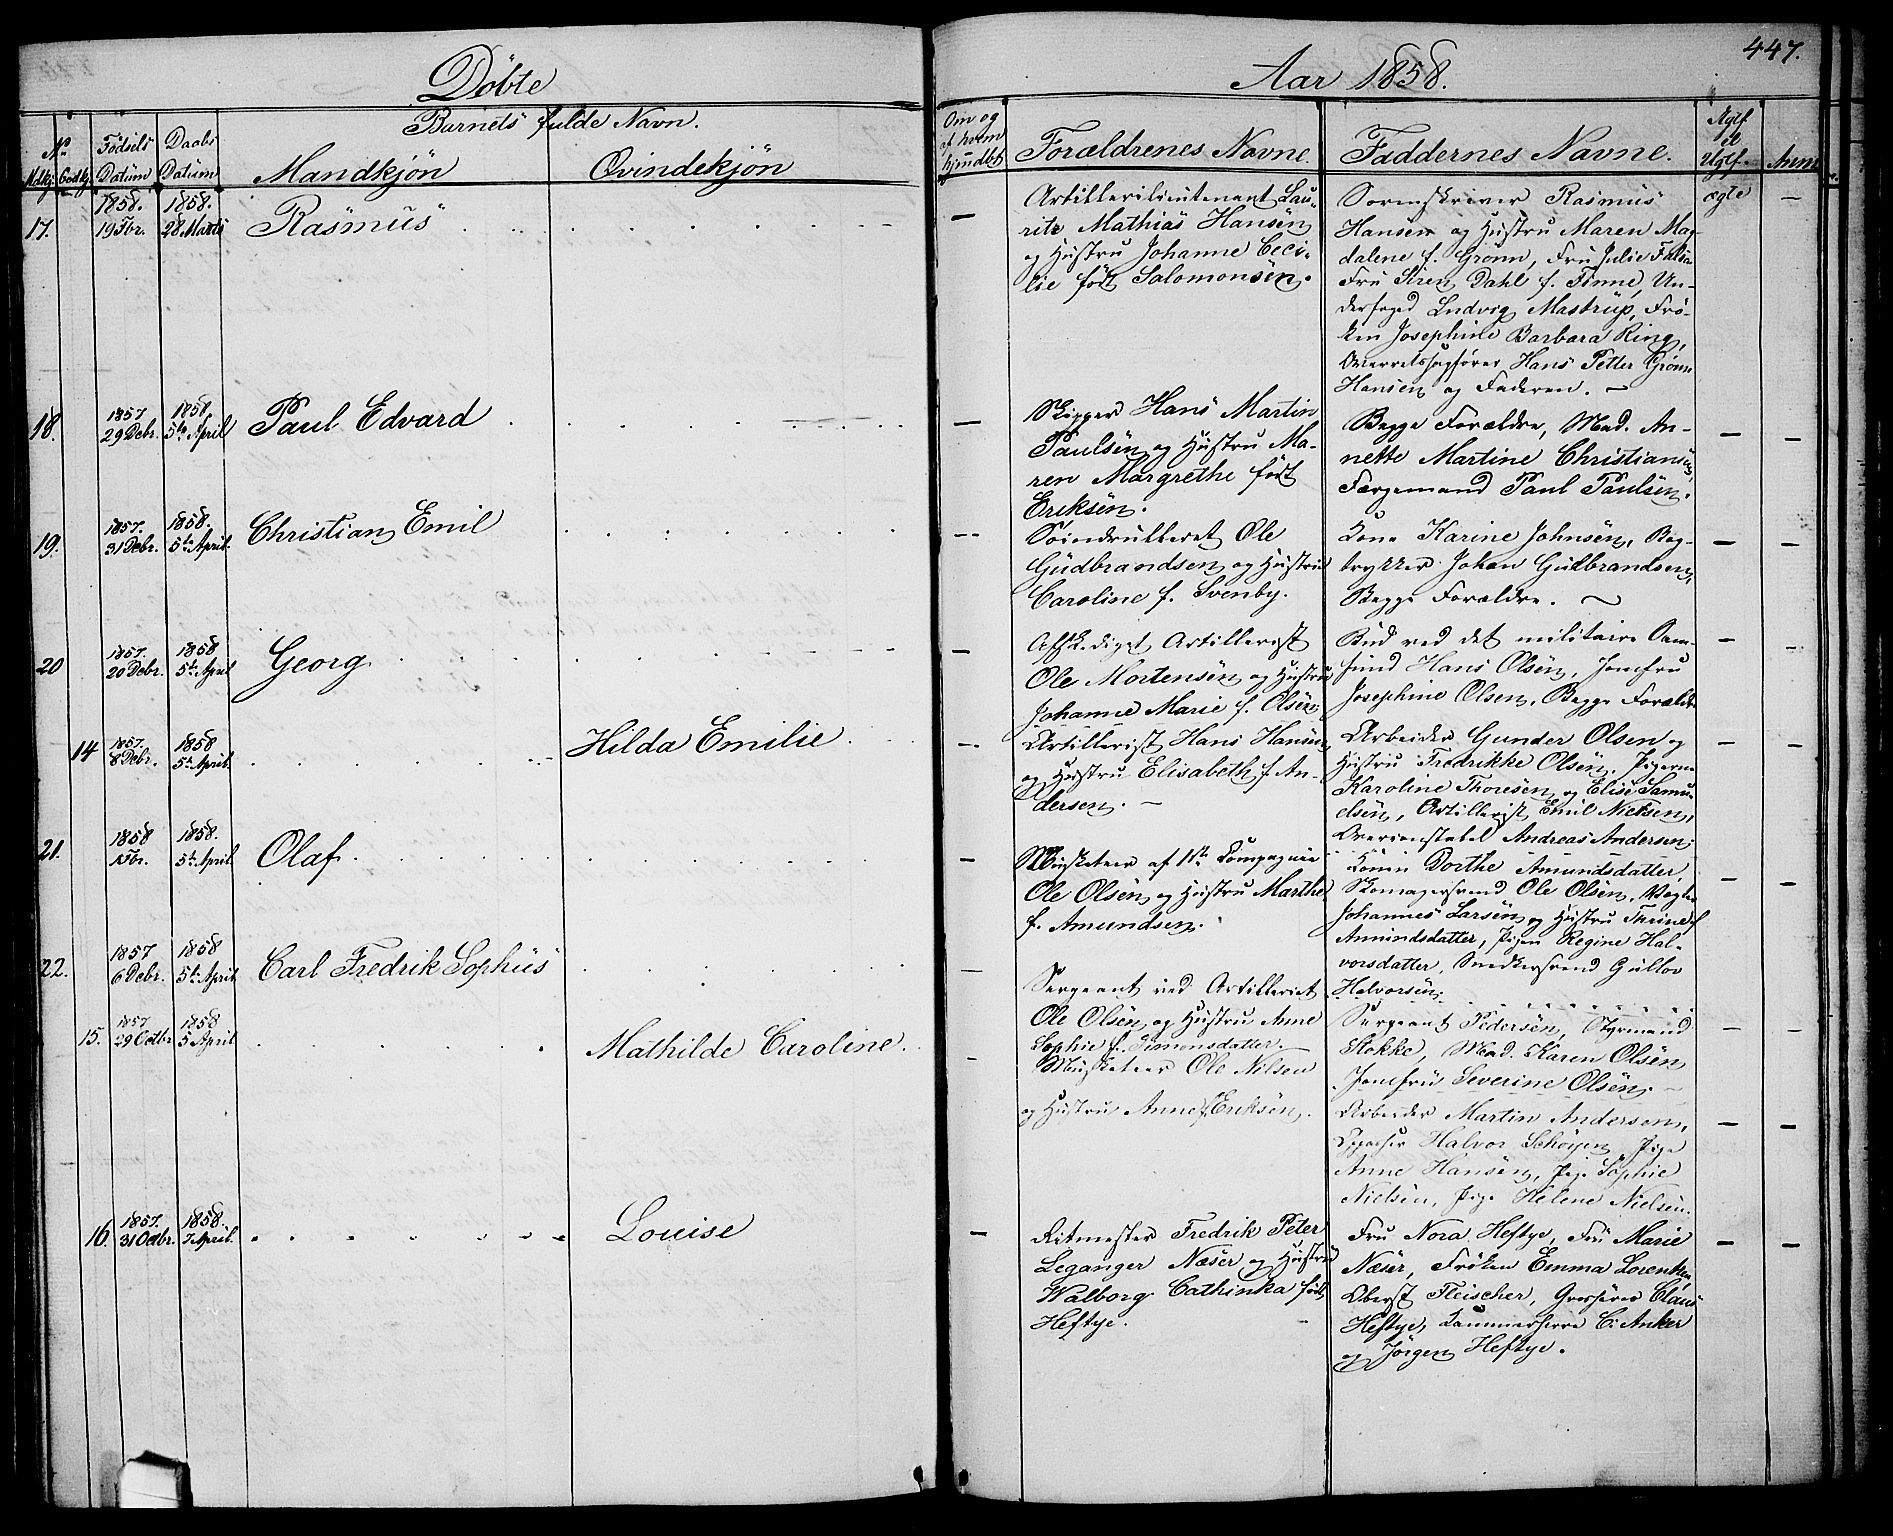 447.
Döbte
Aar 1858.
No
Mdkj. Qvdkj.
Födsels
Datüm
Daabs
Datüm
Barnets fulde Navn.
Mandkjön
Qvindekjön
Om og
af hvem
hjmdbt
Forældrenes Navne.
Faddernes Navne.
Ægt.
el.
Uægt.
Anm.
17.
1858.
19 Fbr.
1858.
28 Marts
Rasmüs
Artillerilieutenant Lau-
ritz Mathias Hansen
og Hüstru Johanne Ceci-
lie født Salomonsen.
Sorenskriver Rasmüs
Hansen og Hüstru Maren Mag-
dalene f. Grönn, Frü Julie
Frü Siren Dahl f. Finne, Un-
derfoged Ludvig Mastrup, Frö-
ken Josephine Barbara Ring,
Overretssagförer Hans Petter Grönn
Hansen og Faderen. —
ægte
18.
1857
29 Debr.
1858.
5te April
Paul Edvard
Skipper Hans Martin
Paulsen og Hüstru Ma-
ren Margrethe født
Eriksen.
Begge Forældre, Mad. An-
nette Martine Christiansen,
Færgemand Paul Paulsen.
19.
1857.
31 Debr.
1858.
5te April.
Christian Emil
Söindrulleret Ole
Gudbrandsen og Hüstru
Caroline f. Svenby.
Kone Karine Johnsen, Bog-
trykker Johan Gudbrandsen,
Begge Forældre. —
20
1857.
20 Debr.
1858
5te April
Georg
Afskediget Artillerist
Ole Mortensen og Hüstru
Johanne Marie f. Olsen
Bud ved det militaire Sam-
fund Hans Olsen, Jomfru
Josephine Olsen, Begge Forældre
14
1857.
8 Debr.
1858
5te April.
Hilda Emilie
Artillerist Hans Hansen
og Hüstru Elisabeth f. An-
dersen. —
Arbeider Gunder Olsen og
Hüstru Fredrikke Olsen, Pigerne
Karoline Thoresen og Elise Samu-
elsen, Artillerist Emil Nielsen,
Overconstabel Andreas Andersen.
21.
1858
1 Fbr.
1858.
5te April.
Olaf
Musketeer af 1ste Compagnie
Ole Olsen og Hüstru Marthe
f. Amundsen.
Konen Dorthe Amundsdatter,
Skomagersvend Ole Olsen, Vægter
Johannes Larsen og Hüstru Thrine f.
Amündsdatter, Pigen Regine Hal-
vorsdatter, Snedkersvend Gullov
Halvorsen.
22.
1857
6 Debr.
1858
5te April
Carl Fredrik Sophüs
Sergeant ved Artilleriet
Ole Olsen og Hüstru Anne
Sophie f. Simonsdatter.
Sergeant Pedersen, Styrmand
Stokke, Mad. Karen Olsen
Jomfrü Severine Olsen. —
15.
1857
29 Octbr
1858
5 April
Mathilde Caroline.
Musketeer Ole Nilsen
og Hüstru Anne f. Eriksen.
Arbeider Martin Andersen,
Halvor Schöyen, Pige
Anne Hansen, Pige Sophie
Nielsen, Pige Helene Nielsen.
16.
1857.
31 Octbr.
1858.
7 April.
Louise
Ritmester Fredrik Peter
Leganger Næser og Hüstru
Walborg Cathinka født
Heftye.
Fru Nora Heftye, Frü Marie
Næser, Fröken Emma Lorentzen,
Oberst Fleischer, Grosserer Claus
Heftye, Kammerherre C: Anker
og Jörgen Heftye.